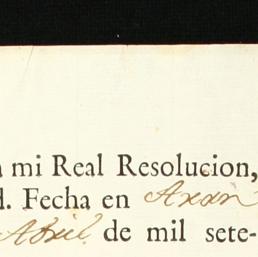 a mi Real Resolucion,
d. Fecha en Aran
Abril de mil sete-